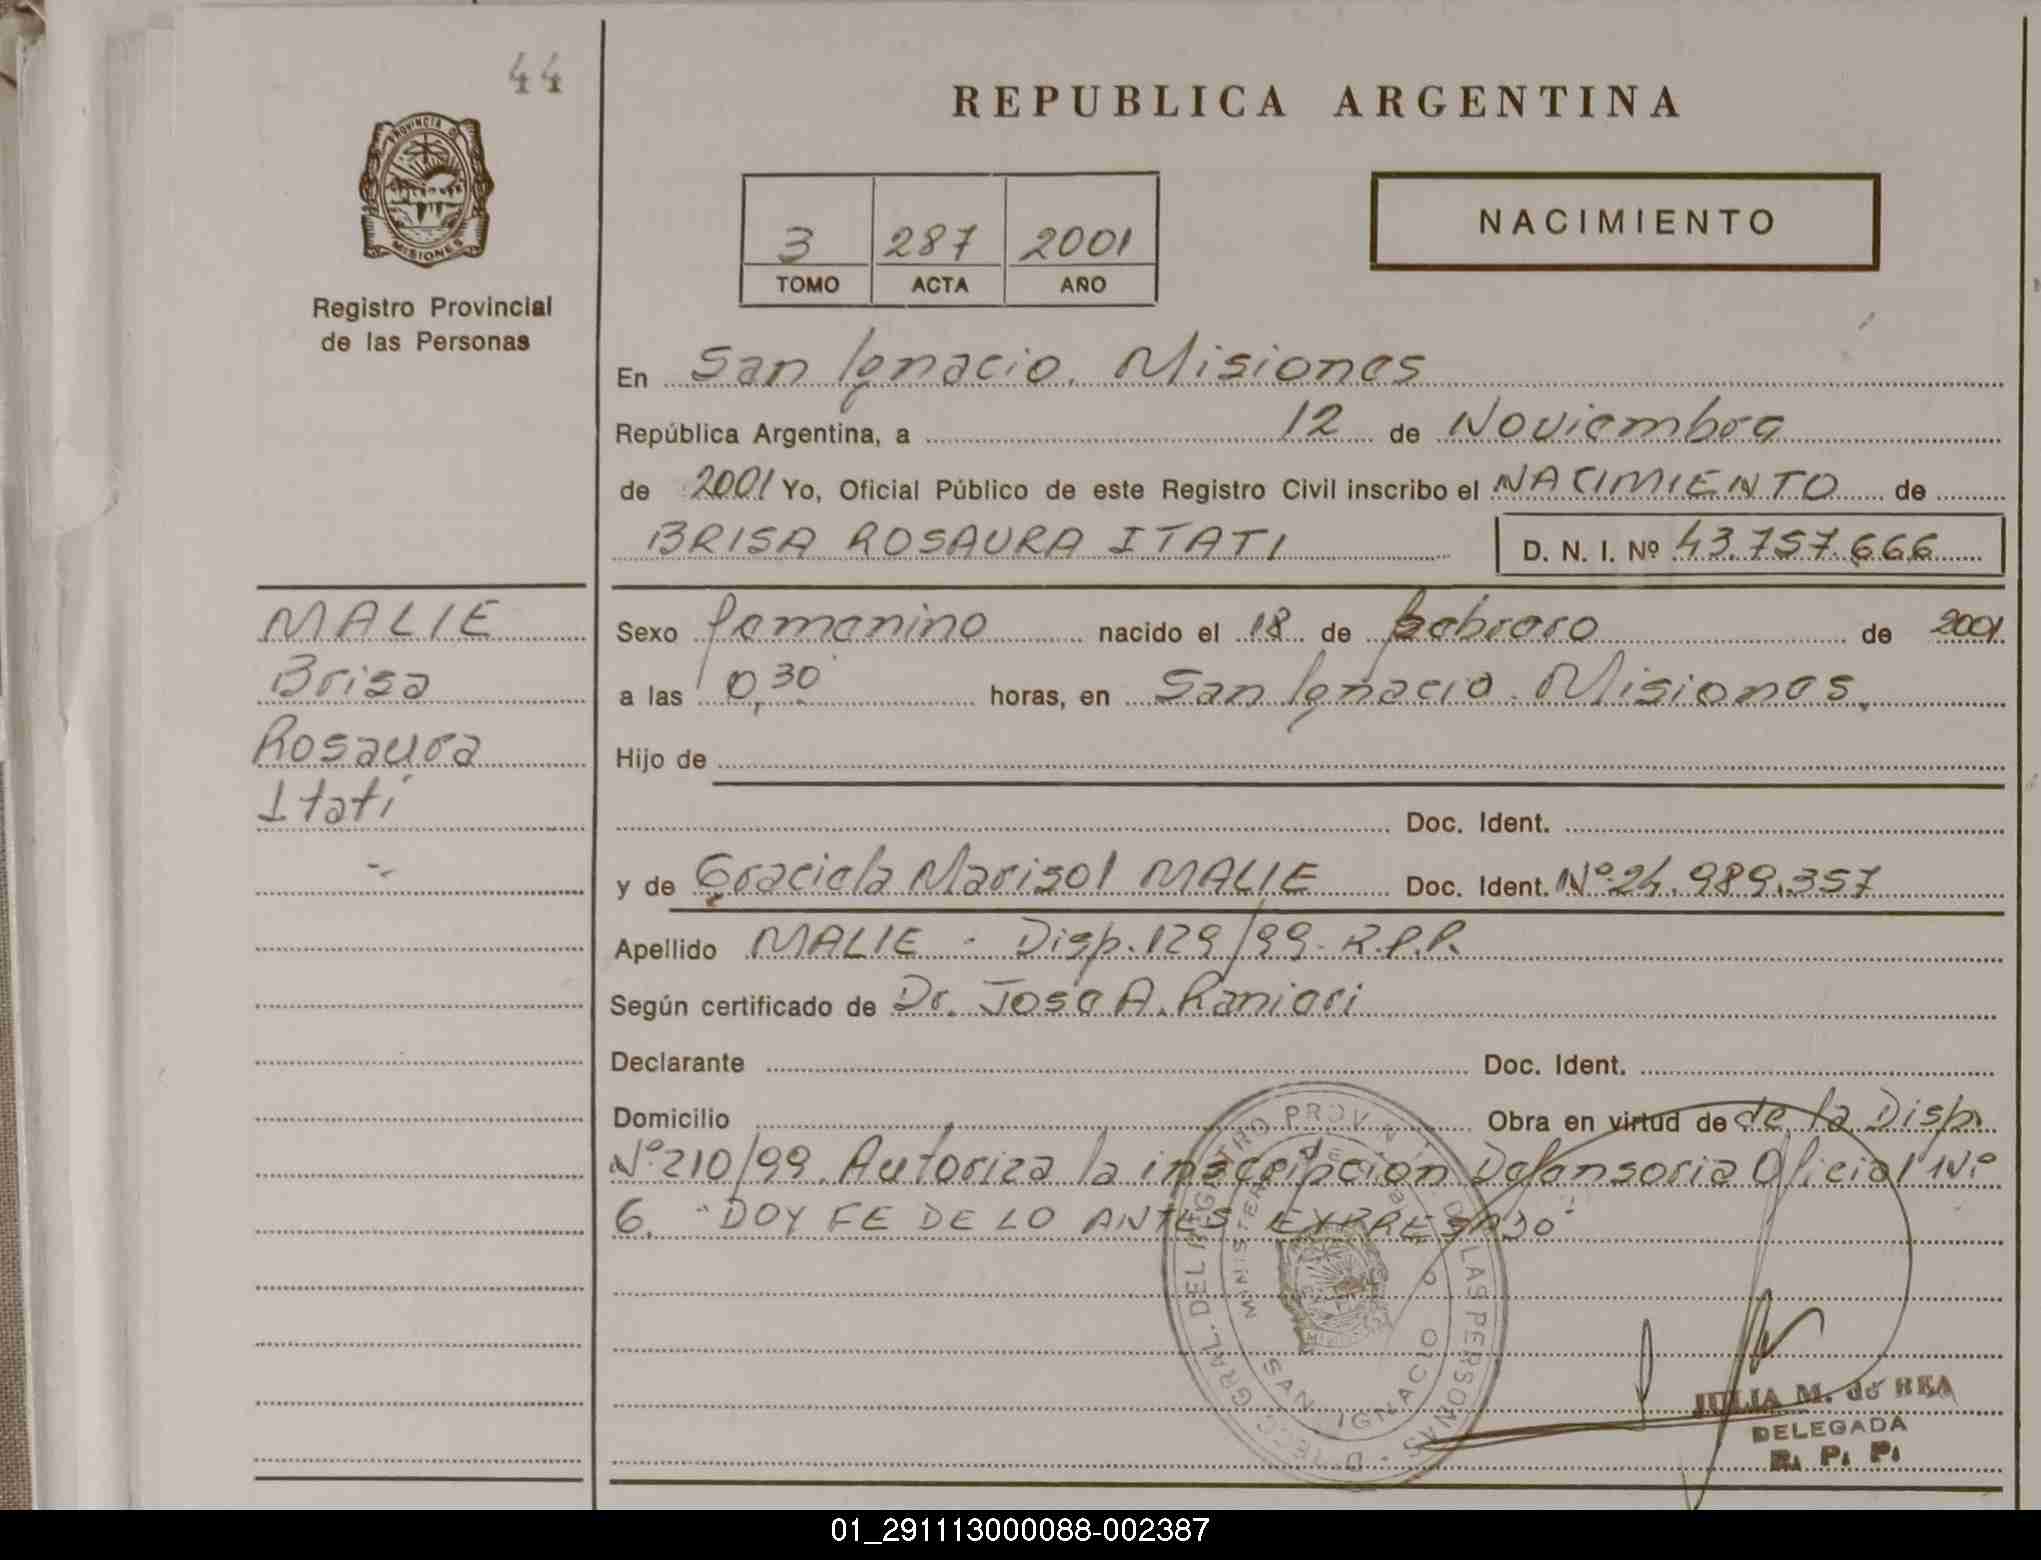 44
REPUBLICA ARGENTINA
PROVINCIA D
MISIONES
Registro Provincial
de las Personas
3 287 2001
TOMO ACTA AÑO
NACIMIENTO
En San Ignacio. Misiones
República Argentina, a 12 de Noviembre
de 2001 Yo, Oficial Público de este Registro Civil inscribo el NACIMIENTO de
BRISA ROSAURA ITATI D. N. I. Nº 43.757.666
MALIE
Brisa
Rosaura
Itatí
Sexo femenino nacido el 18 de febrero de 2001
a las 0,30 horas, en San Ignacio. Misiones.
Hijo de
Doc. Ident.
y de Graciela Marisol MALIE Doc. Ident. Nº 24.989.357
Apellido MALIE - Disp. 129/99- R.P.P.
Según certificado de Dr. Jose A. Ranieri
Declarante Doc. Ident.
Domicilio Obra en virtud de de la Disp.
Nº 210/99. Autoriza la inscripcion Defensoria Oficial Nº
6. "DOY FE DE LO ANTES EXPRESADO"
GRAL. DEL REGISTRO PROV. DE LAS PERSONAS
SAN IGNACIO
JULIA M. de REA
DELEGADA
R. P. P.
01_291113000088-002387